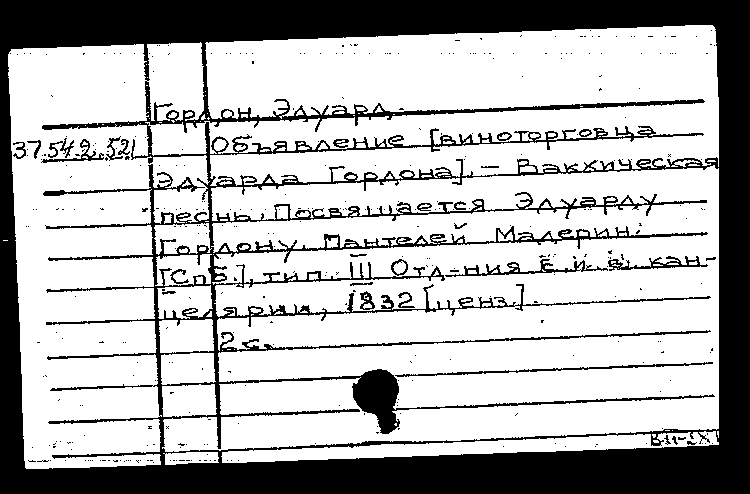 Гордон, Эдуард.
37.54.2.521 Объявление [виноторговца
Эдуарда Гордона]. — Вакхическая
песнь. Посвящается Эдуарду
Гордону. Пантелей Мадерин.
[Спб.], тип. III Отд-ния Е. И. В. кан-
целярии, 1832 [ценз.].
2 с.